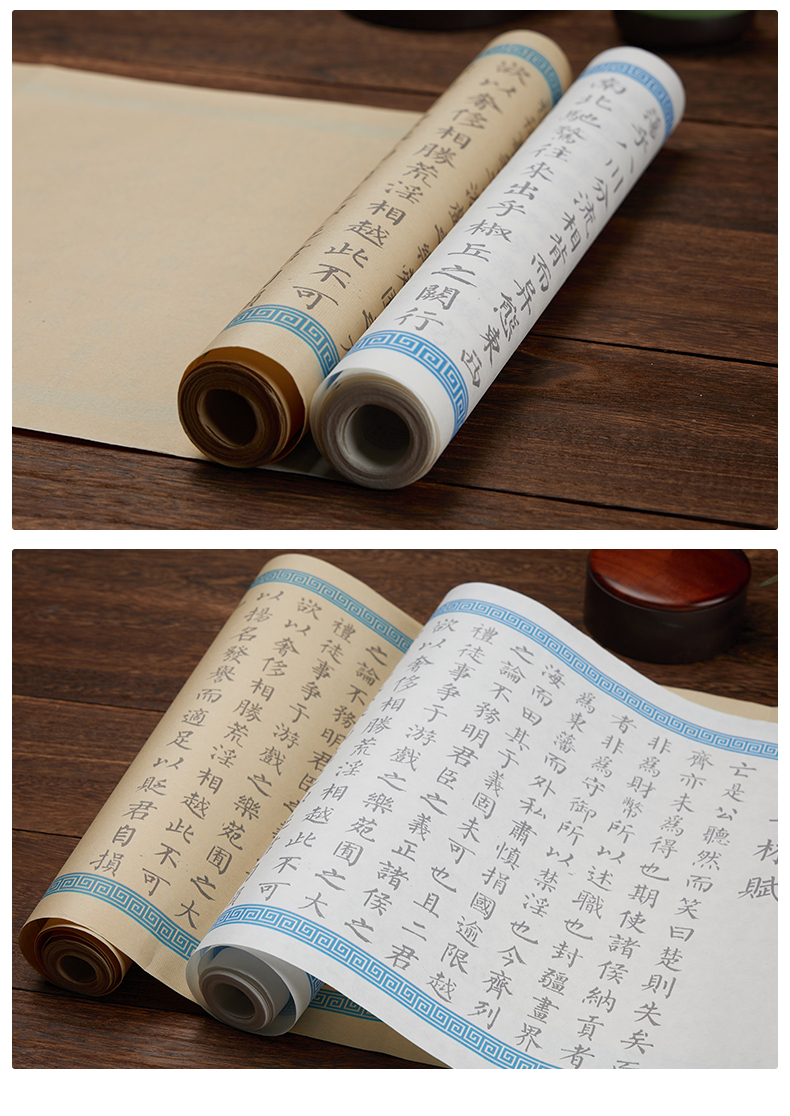 蕩乎八川分流相背而异態東西
南北馳騖往來出乎椒丘之闕行
欲以奢侈相勝荒淫相越此不可
林賦
亡是公聽然而笑曰楚則失矣而
齊亦未爲得也期使諸侯納貢者
非爲財幣所以述職也封疆畫界
者非爲守御所以禁淫也今齊列
爲東藩而外私肅慎捐國逾限越
海而田其于義固未可也且二君
之論不務明君臣之義正諸侯之
禮徒事争于游戲之樂苑囿之大
欲以奢侈相勝荒淫相越此不可
之論不務明君臣
禮徒事争于游戲之樂苑囿之大
欲以奢侈相勝荒淫相越此不可
以揚名發譽而適足以貶君自損